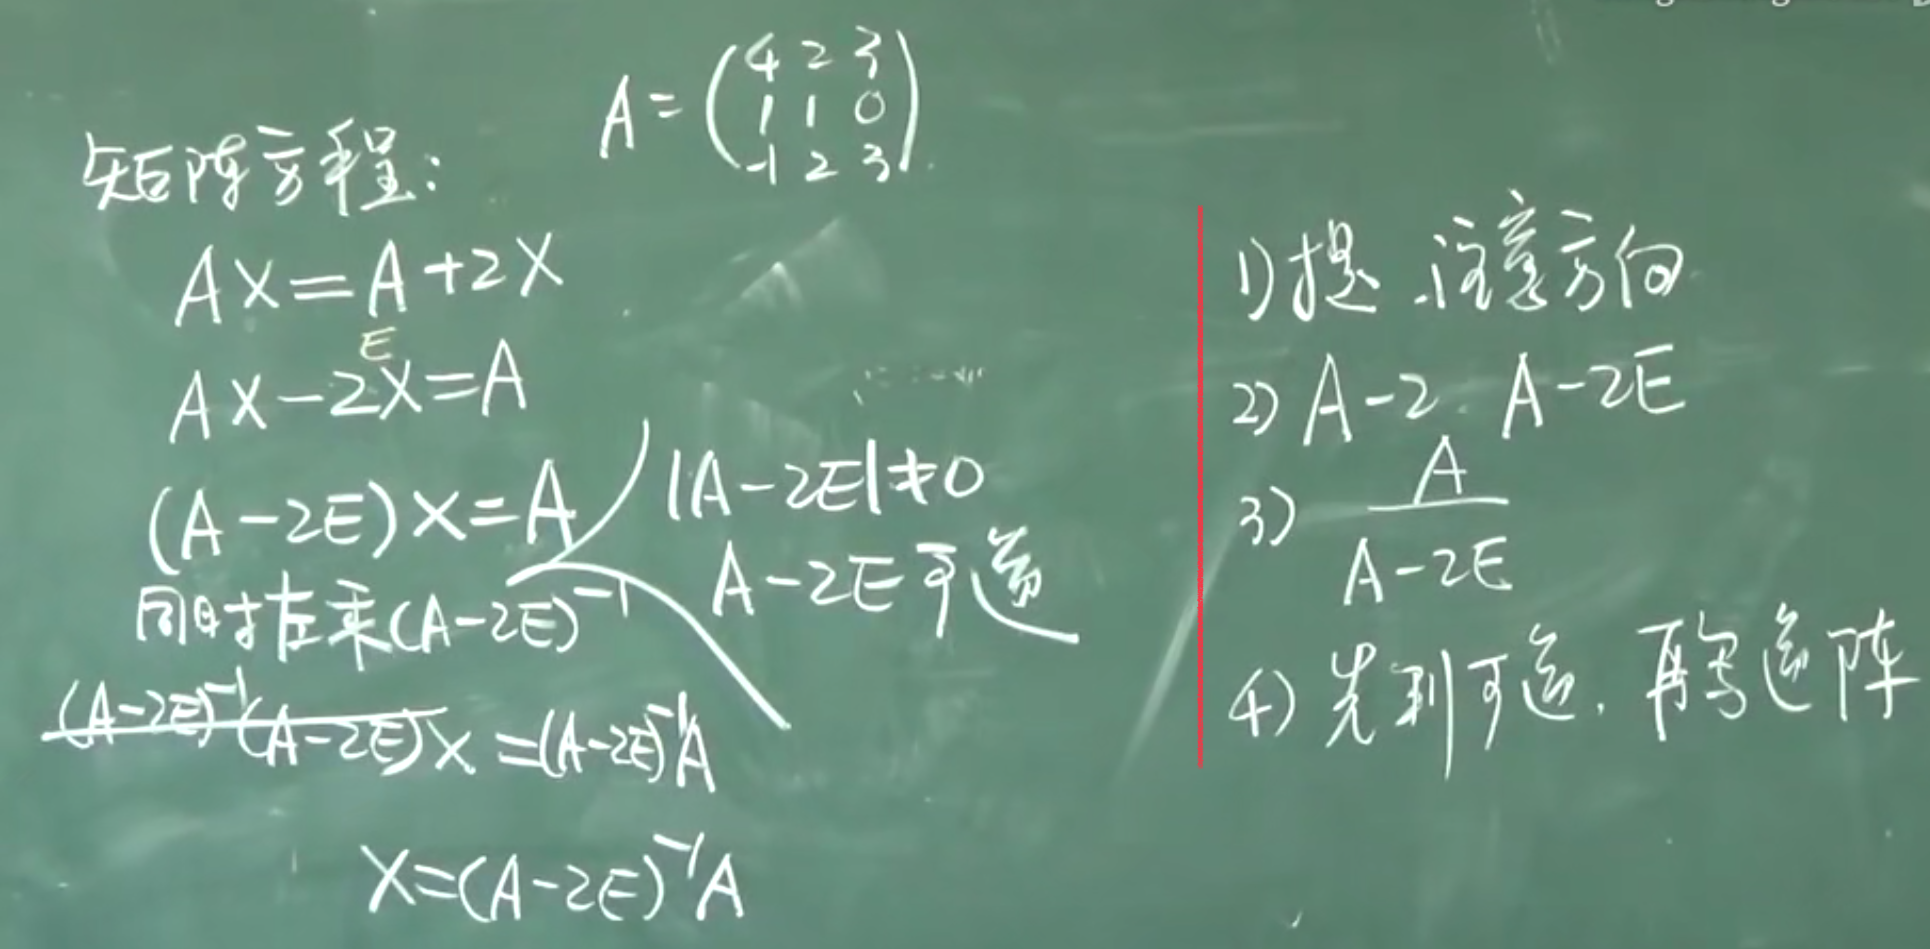 A=(4 2 3
1 1 0
-1 2 3)
矩阵方程:
AX=A+2X
E
AX-2X=A
(A-2E)X=A
|A-2E|≠0
A-2E可逆
同时左乘(A-2E)⁻¹
(A-2E)⁻¹(A-2E)X=(A-2E)⁻¹A
X=(A-2E)⁻¹A
1)提.注意方向
2)A-2. A-2E
3) A
A-2E
4)先判可逆.再写逆阵